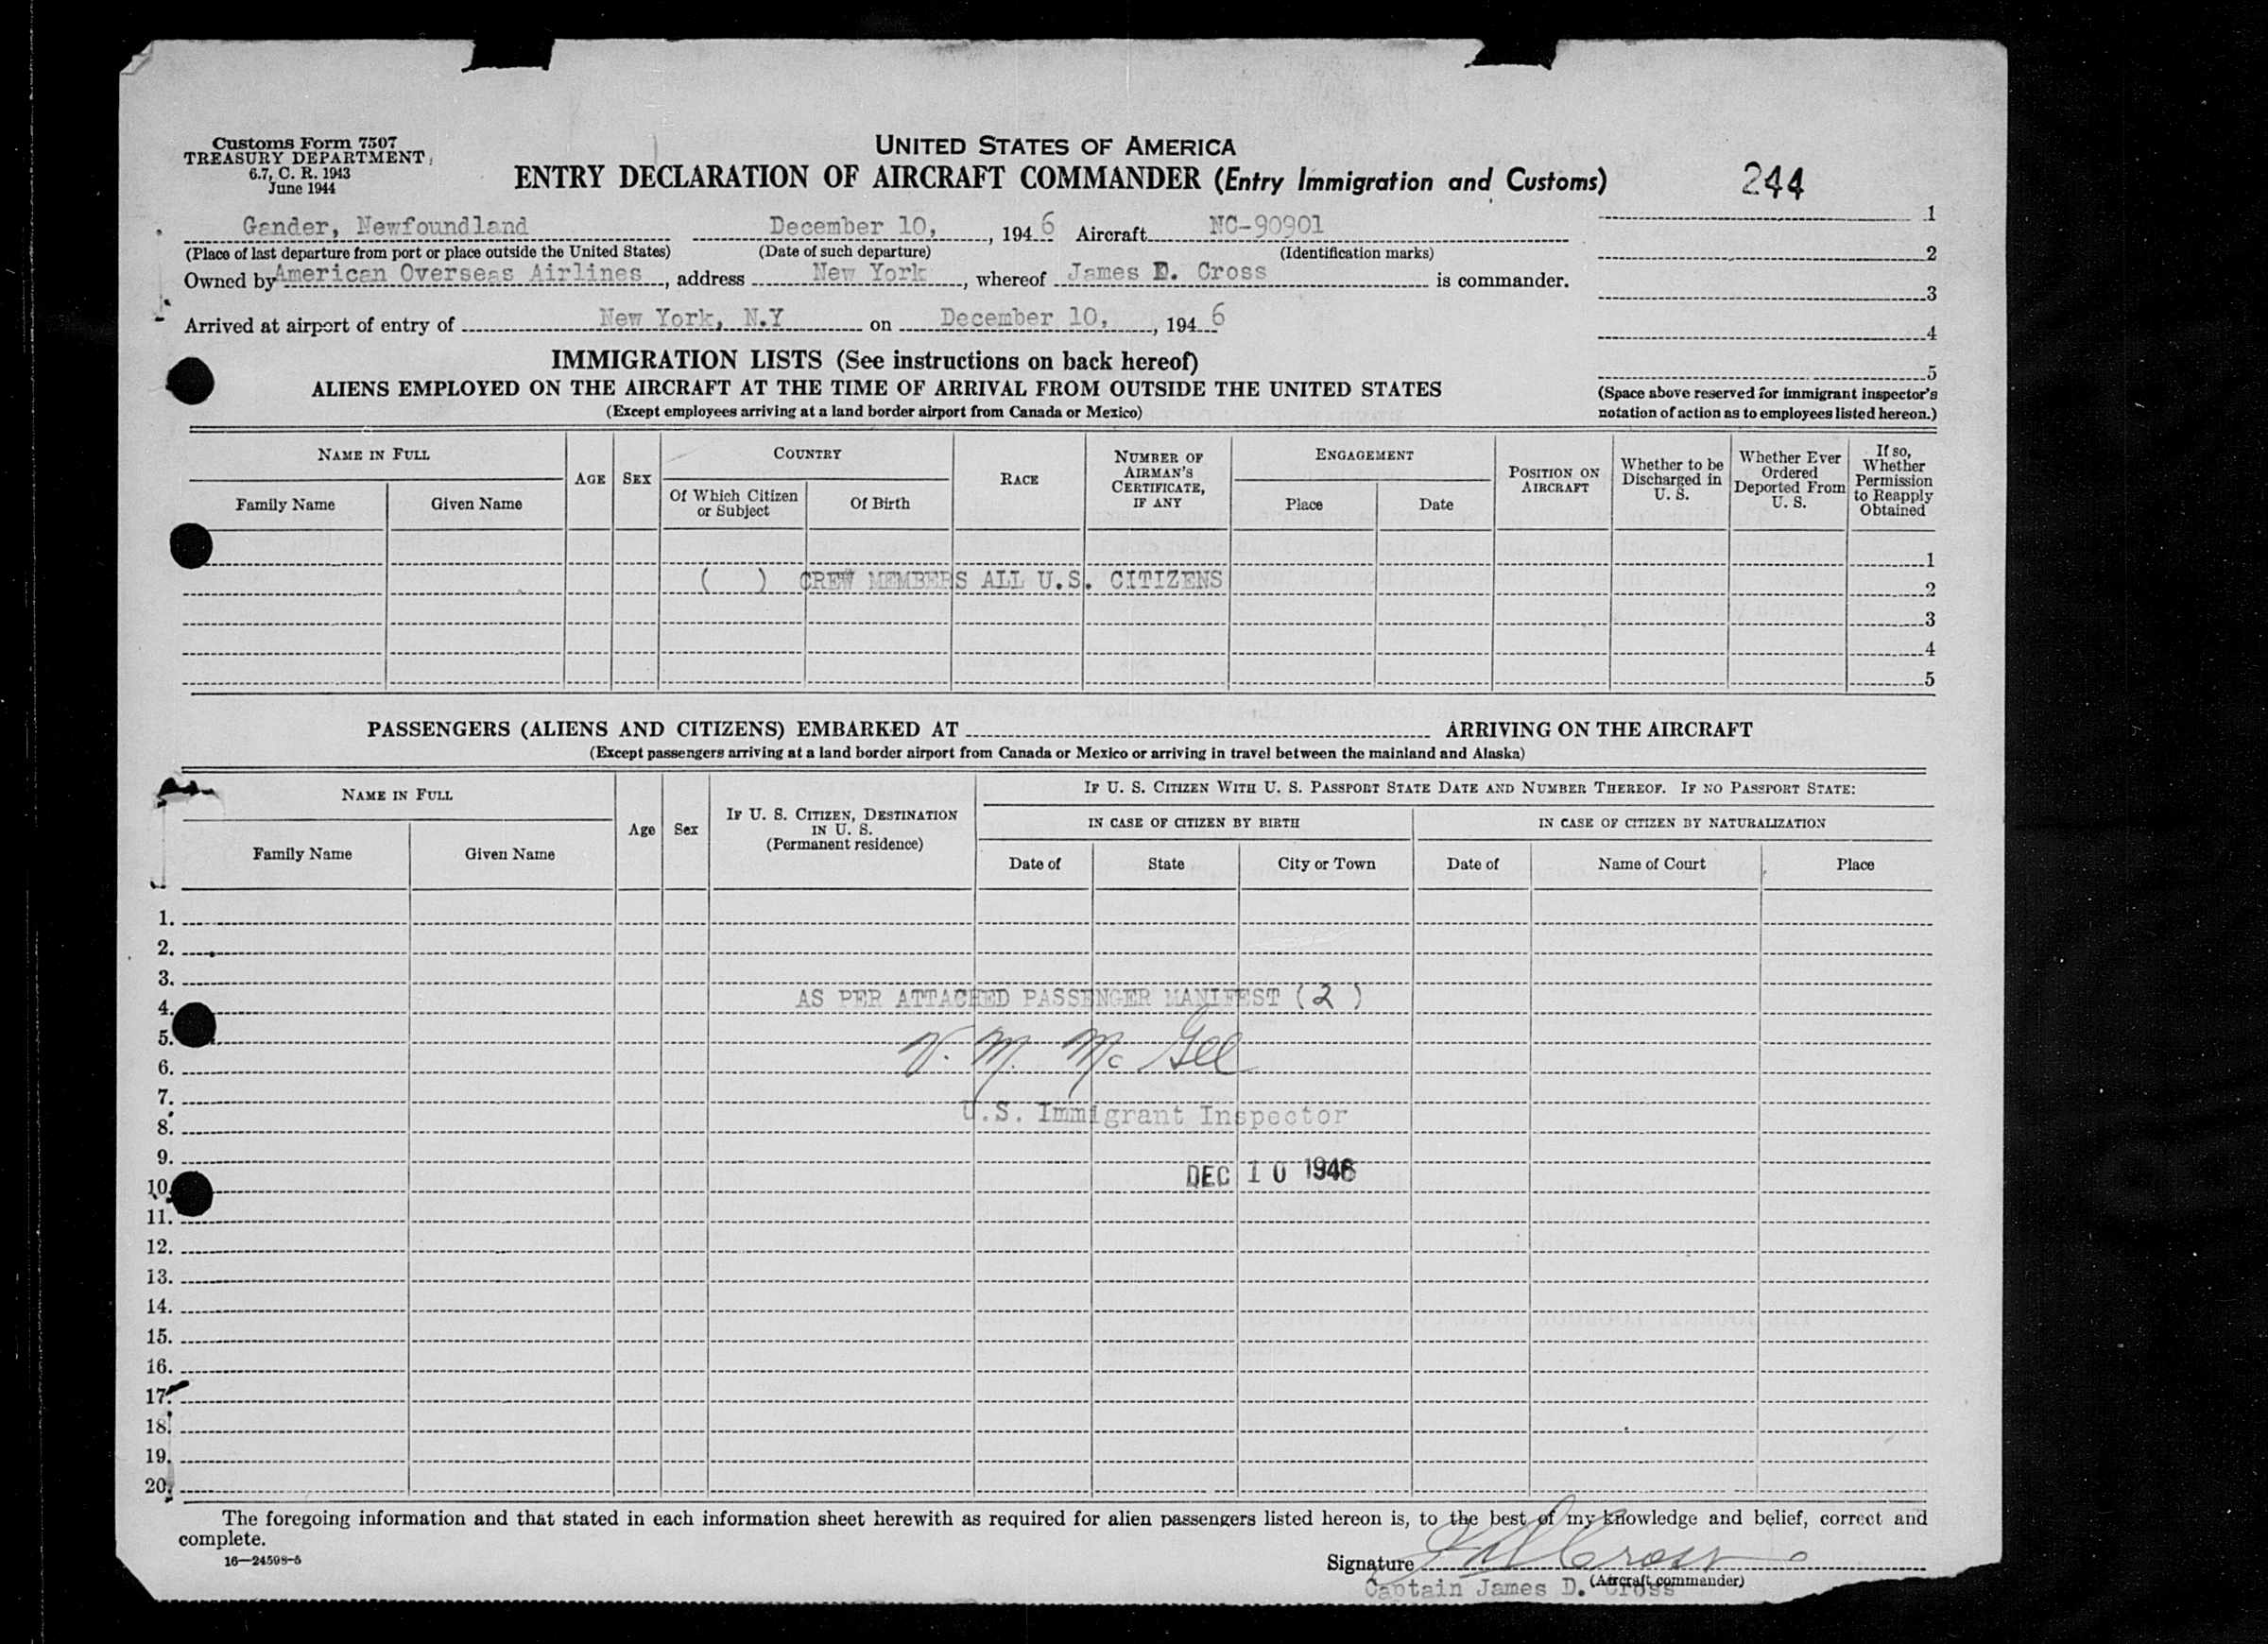 Customs Form 7507
TREASURY DEPARTMENT
6.7, C. R. 1943
June 1944
UNITED STATES OF AMERICA
ENTRY DECLARATION OF AIRCRAFT COMMANDER (Entry Immigration and Customs)
244
Gander, Newfoundland December 10, 194 6 Aircraft NC-90901
(Place of last departure from port or place outside the United States) (Date of such departure) (Identification marks)
Owned by American Overseas Airlines, address New York, whereof James D. Cross is commander.
Arrived at airport of entry of New York, N.Y on December 10, 194 6
1
2
3
4
5
(Space above reserved for immigrant inspector's
notation of action as to employees listed hereon.)
IMMIGRATION LISTS (See instructions on back hereof)
ALIENS EMPLOYED ON THE AIRCRAFT AT THE TIME OF ARRIVAL FROM OUTSIDE THE UNITED STATES
(Except employees arriving at a land border airport from Canada or Mexico)
NAME IN FULL
Family Name Given Name
AGE SEX
COUNTRY
Of Which Citizen or Subject
Of Birth
RACE
NUMBER OF AIRMAN'S CERTIFICATE, IF ANY
ENGAGEMENT
Place Date
POSITION ON AIRCRAFT
Whether to be Discharged in U. S.
Whether Ever Ordered Deported From U. S.
If so, Whether Permission to Reapply Obtained
1
( ) CREW MEMBERS ALL U.S. CITIZENS 2
3
4
5
PASSENGERS (ALIENS AND CITIZENS) EMBARKED AT ARRIVING ON THE AIRCRAFT
(Except passengers arriving at a land border airport from Canada or Mexico or arriving in travel between the mainland and Alaska)
NAME IN FULL
Family Name Given Name
Age Sex
IF U. S. CITIZEN, DESTINATION IN U. S.
(Permanent residence)
IF U. S. CITIZEN WITH U. S. PASSPORT STATE DATE AND NUMBER THEREOF. IF NO PASSPORT STATE:
IN CASE OF CITIZEN BY BIRTH IN CASE OF CITIZEN BY NATURALIZATION
Date of State City or Town Date of Name of Court Place
1.
2.
3.
4. AS PER ATTACHED PASSENGER MANIFEST (2)
5.
6. V. M. McGee
7.
8. U.S. Immigrant Inspector
9.
10. DEC 10 1946
11.
12.
13.
14.
15.
16.
17.
18.
19.
20.
The foregoing information and that stated in each information sheet herewith as required for alien passengers listed hereon is, to the best of my knowledge and belief, correct and
complete.
16—24598-5
Signature J D Cross
(Aircraft commander)
Captain James D. Cross